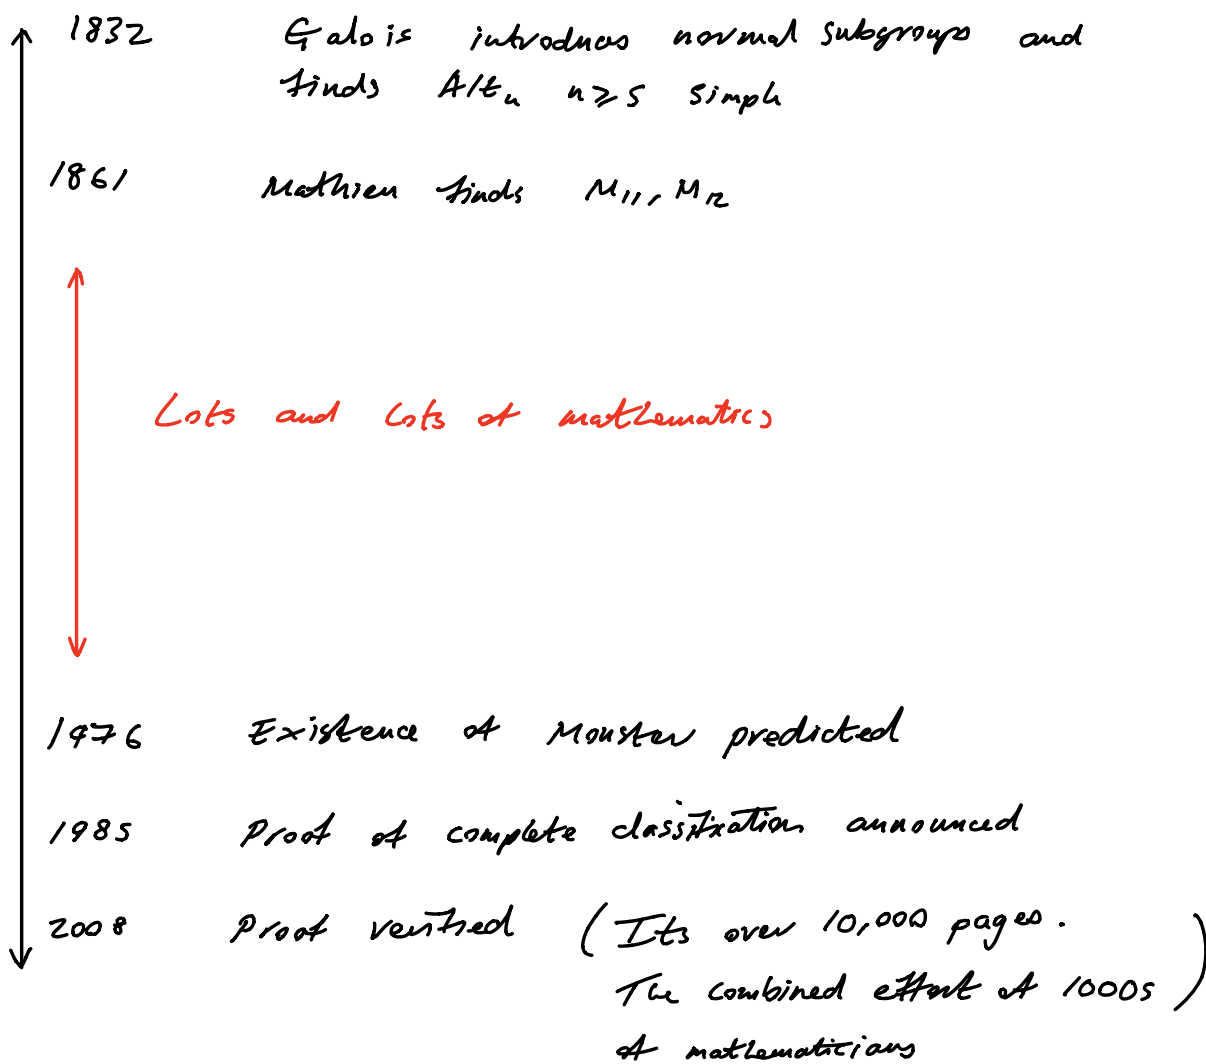 1832 Galois introduces normal subgroups and
finds Alt_n n ≥ 5 simple
1861 Mathieu finds M_11, M_12
Lots and lots of mathematics
1976 Existence of Monster predicted
1985 Proof of complete classification announced
2008 Proof verified (Its over 10,000 pages.
The combined effort of 1000s
of mathematicians)